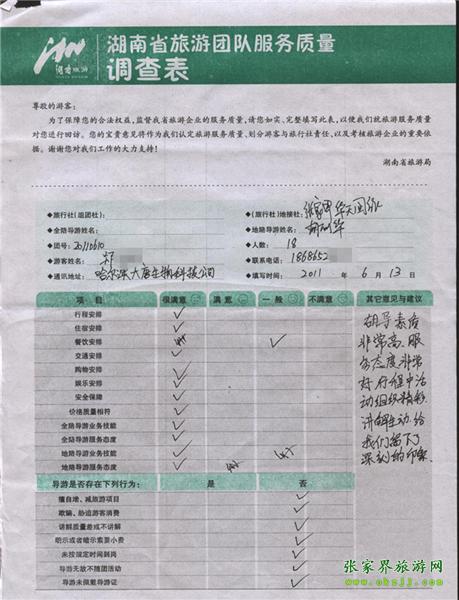 湖南旅游
湖南省旅游团队服务质量
调查表
尊敬的游客：
为了保障您的合法权益，监督我省旅游企业的服务质量，请您如实、完整填写此表，以便我们就旅游服务质量
对您进行回访。您的宝贵意见将作为我们认定旅游服务质量、划分游客与旅行社责任，以及考核旅游企业的重要依
据。谢谢您对我们工作的大力支持！
湖南省旅游局
◆旅行社(组团社)： ◆(旅行社)地接社：张家界中天国旅
◆全陪导游姓名： ◆地陪导游姓名：
◆团号：20110610 ◆人数：18
◆游客姓名： ◆联系电话：1868652
◆通讯地址：哈尔滨大唐生物科技公司 ◆填写时间：2011 年 6 月 13 日
项 目 很满意 满 意 一 般 不满意 其它意见与建议
行程安排
住宿安排
餐饮安排
交通安排
购物安排
娱乐安排
安全保障
价格质量相符
全陪导游业务技能
全陪导游服务态度
地陪导游业务技能
地陪导游服务态度
胡导素质
非常高、服
务态度非常
好，行程中活
动组织精彩
讲解生动，给
我们留下了
深刻的印象。
导游是否存在下列行为： 是 否
擅自增、减旅游项目
欺骗、胁迫游客消费
讲解质量差或不讲解
明示或者暗示索要小费
未按规定时间到岗
导游无故不随团活动
导游未佩戴导游证
张家界旅游网
www.okzjj.com